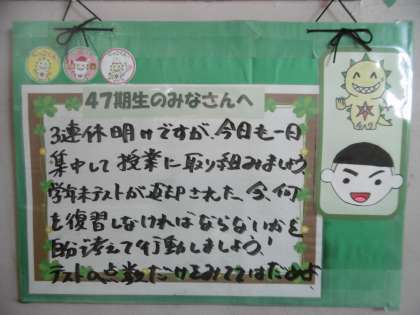 47期生のみなさんへ
3連休明けですが、今日も一日
集中して授業に取り組みましょう。
学年末テストが返却された今、何
を復習しなければならないかを
自分で考えて行動しましょう!
テストの点数だけをみててはだめよ